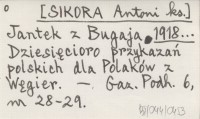 [SIKORA Antoni ks.]
Jantek z Bugaja. 1918...
Dziesięcioro przykazań
polskich dla Polaków z
Węgier. — Gaz. Podh. 6,
nr 28-29.